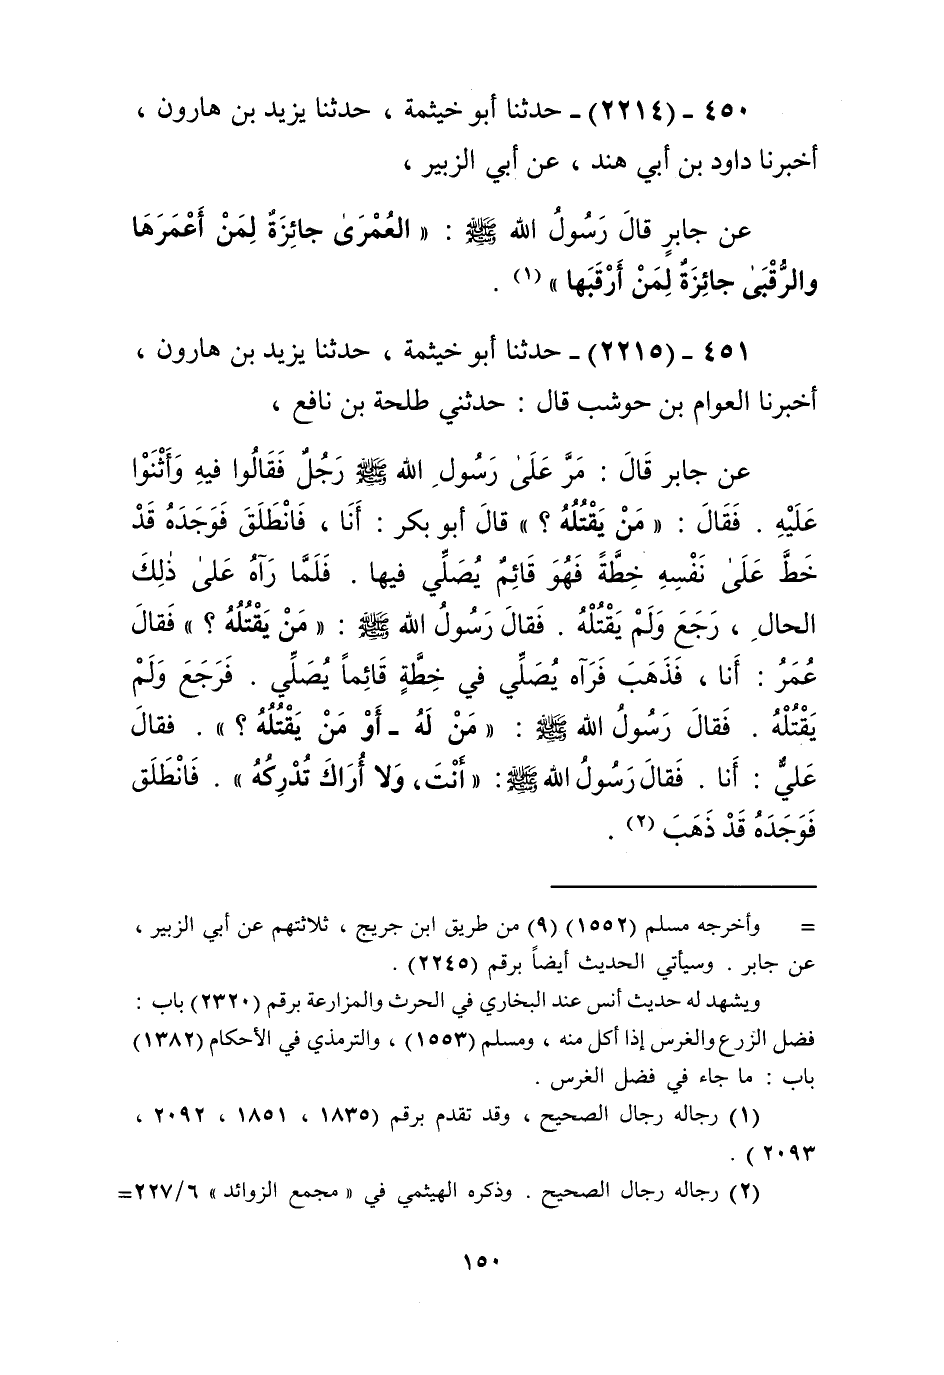 ٤٥٠ ـ (٢٢١٤) ـ حدثنا أبو خيثمة ، حدثنا يزيد بن هارون ،
أخبرنا داود بن أبي هند ، عن أبي الزبير ،
عن جابرٍ قالَ رَسُولُ الله ﷺ : « العُمْرَىٰ جائِزَةٌ لِمَنْ أَعْمَرَهَا
والرُّقْبَىٰ جائِزَةٌ لِمَنْ أَرْقَبَها » (١) .
٤٥١ ـ (٢٢١٥) ـ حدثنا أبو خيثمة ، حدثنا يزيد بن هارون ،
أخبرنا العوام بن حوشب قال : حدثني طلحة بن نافع ،
عن جابر قَالَ : مَرَّ عَلَىٰ رَسُولِ الله ﷺ رَجُلٌ فَقَالُوا فيهِ وَأَثْنَوْا
عَلَيْهِ . فَقَالَ : « مَنْ يَقْتُلُهُ ؟ » قالَ أبو بكر : أَنَا ، فَانْطَلَقَ فَوَجَدَهُ قَدْ
خَطَّ عَلَىٰ نَفْسِهِ خِطَّةً فَهُوَ قَائِمٌ يُصَلِّي فيها . فَلَمَّا رَآهُ عَلىٰ ذٰلِكَ
الحالِ ، رَجَعَ وَلَمْ يَقْتُلْهُ . فَقالَ رَسُولُ الله ﷺ : « مَنْ يَقْتُلُهُ ؟ » فَقالَ
عُمَرُ : أَنا ، فَذَهَبَ فَرَآه يُصَلِّي في خِطَّةٍ قَائِماً يُصَلِّي . فَرَجَعَ وَلَمْ
يَقْتُلْهُ . فَقالَ رَسُولُ الله ﷺ : « مَنْ لَهُ ـ أَوْ مَنْ يَقْتُلُهُ ؟ » . فقالَ
عَليٌّ : أَنا . فَقالَ رَسُولُ الله ﷺ : « أَنْتَ، وَلا أُرَاكَ تُدْرِكُهُ » . فَانْطَلَق
فَوَجَدَهُ قَدْ ذَهَبَ (٢) .
= وأخرجه مسلم (١٥٥٢) (٩) من طريق ابن جريج ، ثلاثتهم عن أبي الزبير ،
عن جابر . وسيأتي الحديث أيضاً برقم (٢٢٤٥) .
ويشهد له حديث أنس عند البخاري في الحرث والمزارعة برقم (٢٣٢٠) باب :
فضل الزرع والغرس إذا أكل منه ، ومسلم (١٥٥٣) ، والترمذي في الأحكام (١٣٨٢)
باب : ما جاء في فضل الغرس .
(١) رجاله رجال الصحيح ، وقد تقدم برقم (١٨٣٥ ، ١٨٥١ ، ٢٠٩٢ ،
٢٠٩٣ ) .
(٢) رجاله رجال الصحيح . وذكره الهيثمي في « مجمع الزوائد » ٦/‏٢٢٧=
١٥٠